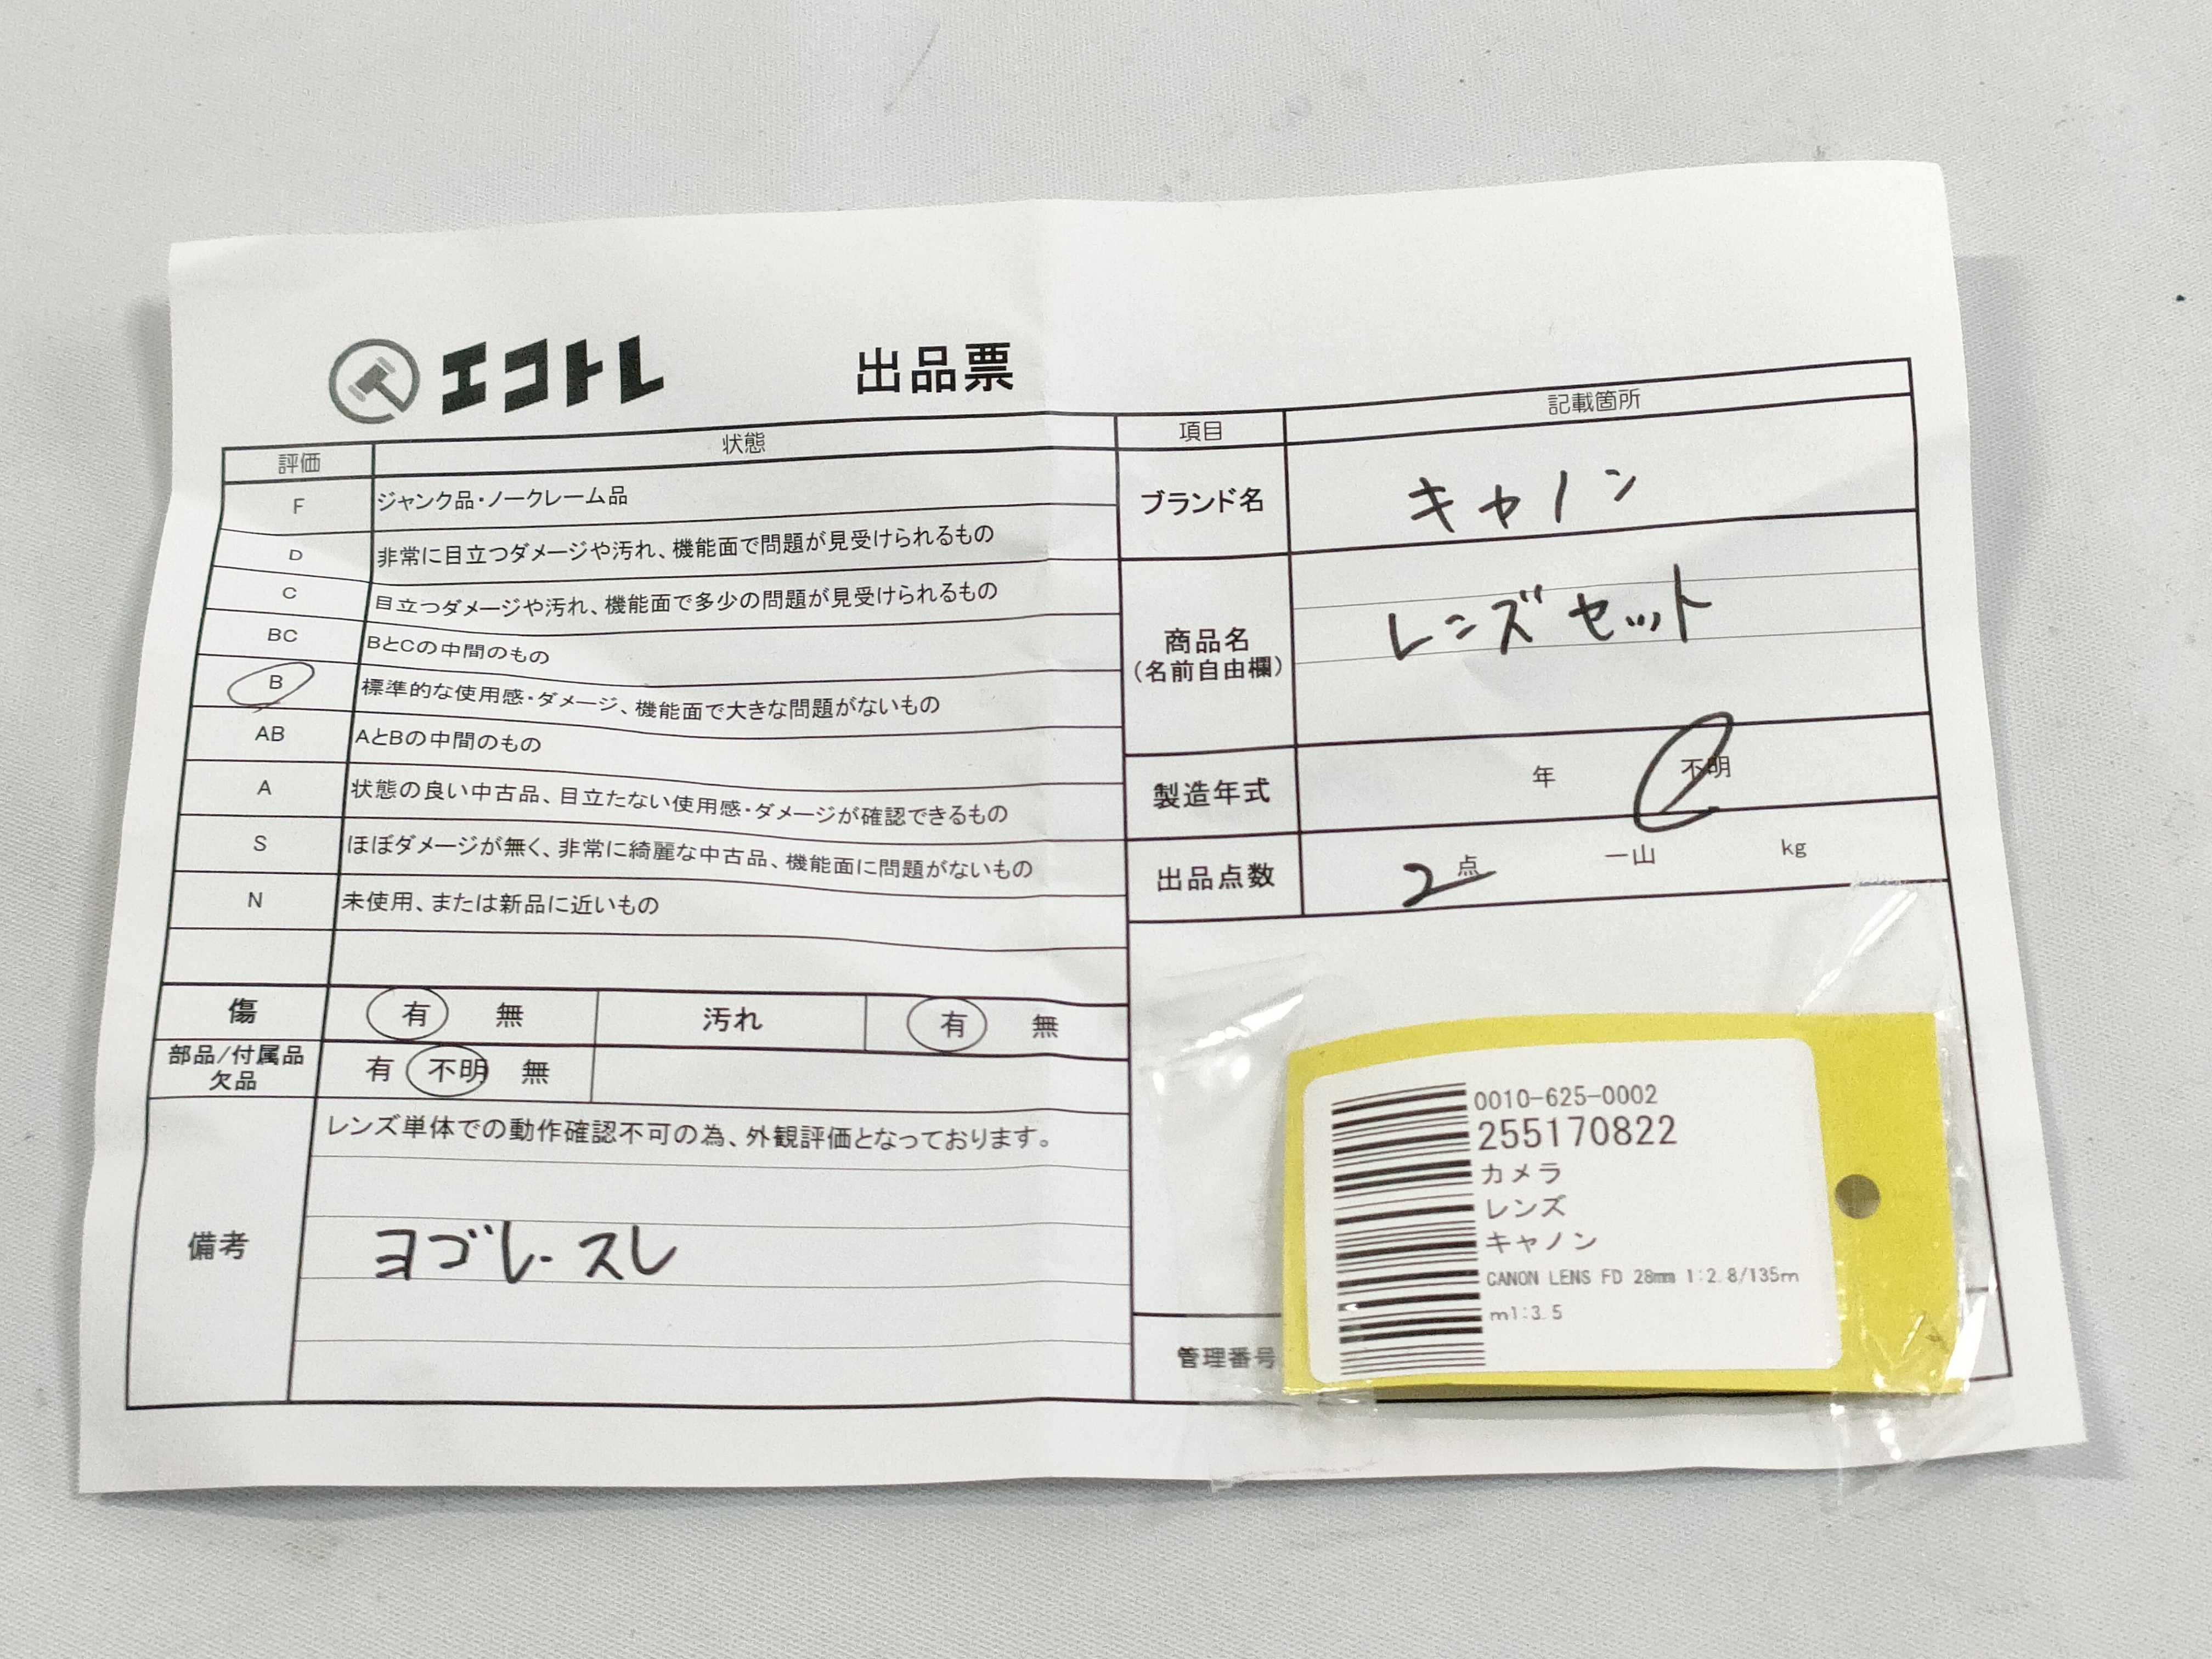 エコトレ 出品票
評価 状態
F ジャンク品・ノークレーム品
D 非常に目立つダメージや汚れ、機能面で問題が見受けられるもの
C 目立つダメージや汚れ、機能面で多少の問題が見受けられるもの
BC BとCの中間のもの
B 標準的な使用感・ダメージ、機能面で大きな問題がないもの
AB AとBの中間のもの
A 状態の良い中古品、目立たない使用感・ダメージが確認できるもの
S ほぼダメージが無く、非常に綺麗な中古品、機能面に問題がないもの
N 未使用、または新品に近いもの
傷 有 無 汚れ 有 無
部品/付属品
欠品 有 不明 無
備考 レンズ単体での動作確認不可の為、外観評価となっております。
ヨゴレ・スレ
項目 記載箇所
ブランド名 キャノン
商品名
(名前自由欄) レンズセット
製造年式 年 不明
出品点数 2点 一山 kg
管理番号
0010-625-0002
255170822
カメラ
レンズ
キャノン
CANON LENS FD 28mm 1:2.8/135m
m1:3.5